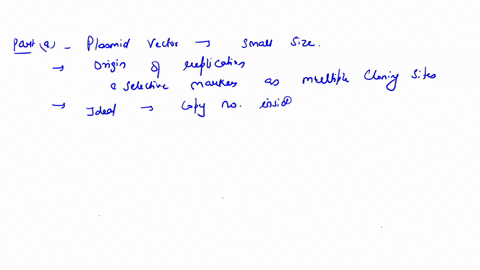 Part (a) - Plasmid vector → small size.
→ Origin of replication
a selective markers as multiple cloning sites
→ Ideal → copy no. insid